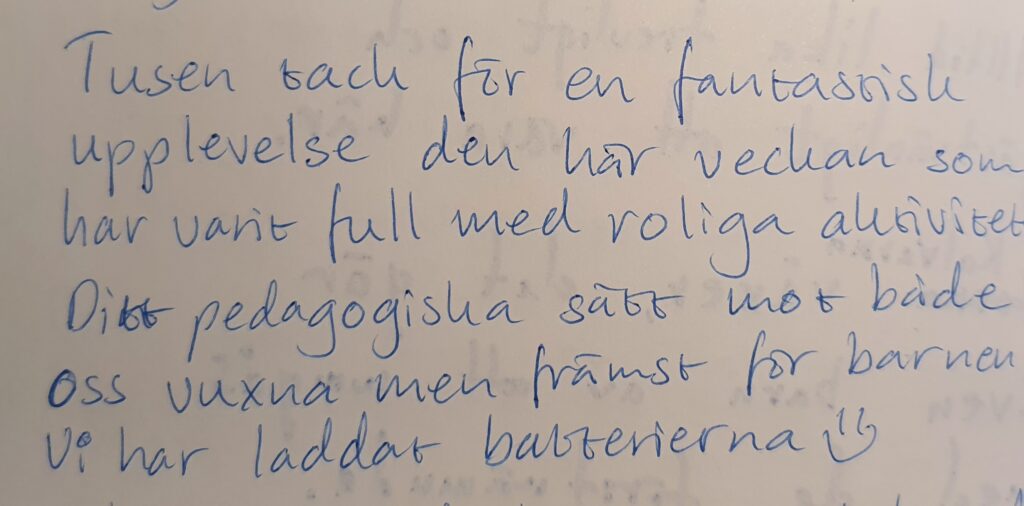 Tusen tack för en fantastisk
upplevelse den här veckan som
har varit full med roliga aktivitet
Ditt pedagogiska sätt mot både
oss vuxna men främst för barnen
Vi har laddat batterierna